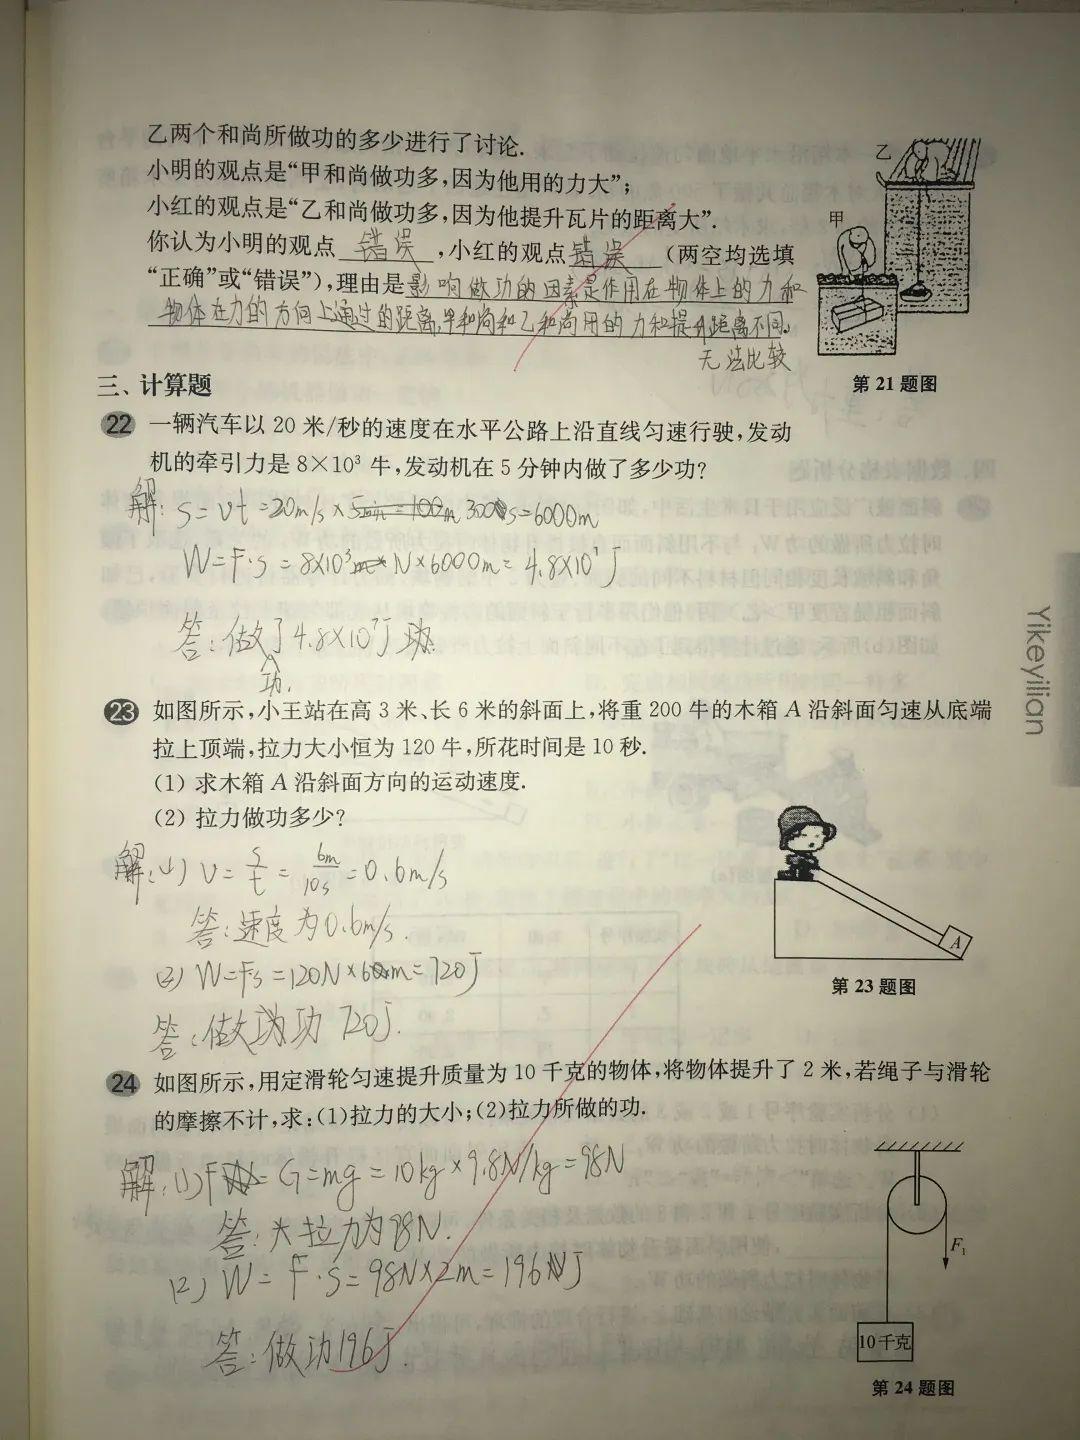 乙两个和尚所做功的多少进行了讨论.
小明的观点是“甲和尚做功多,因为他用的力大”;
小红的观点是“乙和尚做功多,因为他提升瓦片的距离大”.
你认为小明的观点 错误 ,小红的观点 错误 (两空均选填
“正确”或“错误”),理由是影响做功的因素是作用在物体上的力和
物体在力的方向上通过的距离,甲和尚和乙和尚用的力和提升距离不同,
无法比较
乙
甲
第21题图
三、计算题
22 一辆汽车以 20 米/秒的速度在水平公路上沿直线匀速行驶,发动
机的牵引力是 8×10³ 牛,发动机在 5 分钟内做了多少功?
解: s=vt=20m/s×300s=6000m
W=F·s=8×10³N×6000m=4.8×10⁷J
答:做了4.8×10⁷J
功.
23 如图所示,小王站在高 3 米、长 6 米的斜面上,将重 200 牛的木箱 A 沿斜面匀速从底端
拉上顶端,拉力大小恒为 120 牛,所花时间是 10 秒.
(1) 求木箱 A 沿斜面方向的运动速度.
(2) 拉力做功多少?
解:(1) v=s/t=6m/10s=0.6m/s
答:速度为0.6m/s.
(2) W=Fs=120N×6m=720J
答:做功720J.
A
第23题图
24 如图所示,用定滑轮匀速提升质量为 10 千克的物体,将物体提升了 2 米,若绳子与滑轮
的摩擦不计,求:(1)拉力的大小;(2)拉力所做的功.
解:(1)F=G=mg=10kg×9.8N/kg=98N
答:拉力为98N.
(2) W=F·s=98N×2m=196J
答:做功196J.
F₁
10千克
第24题图
Yikeyilian